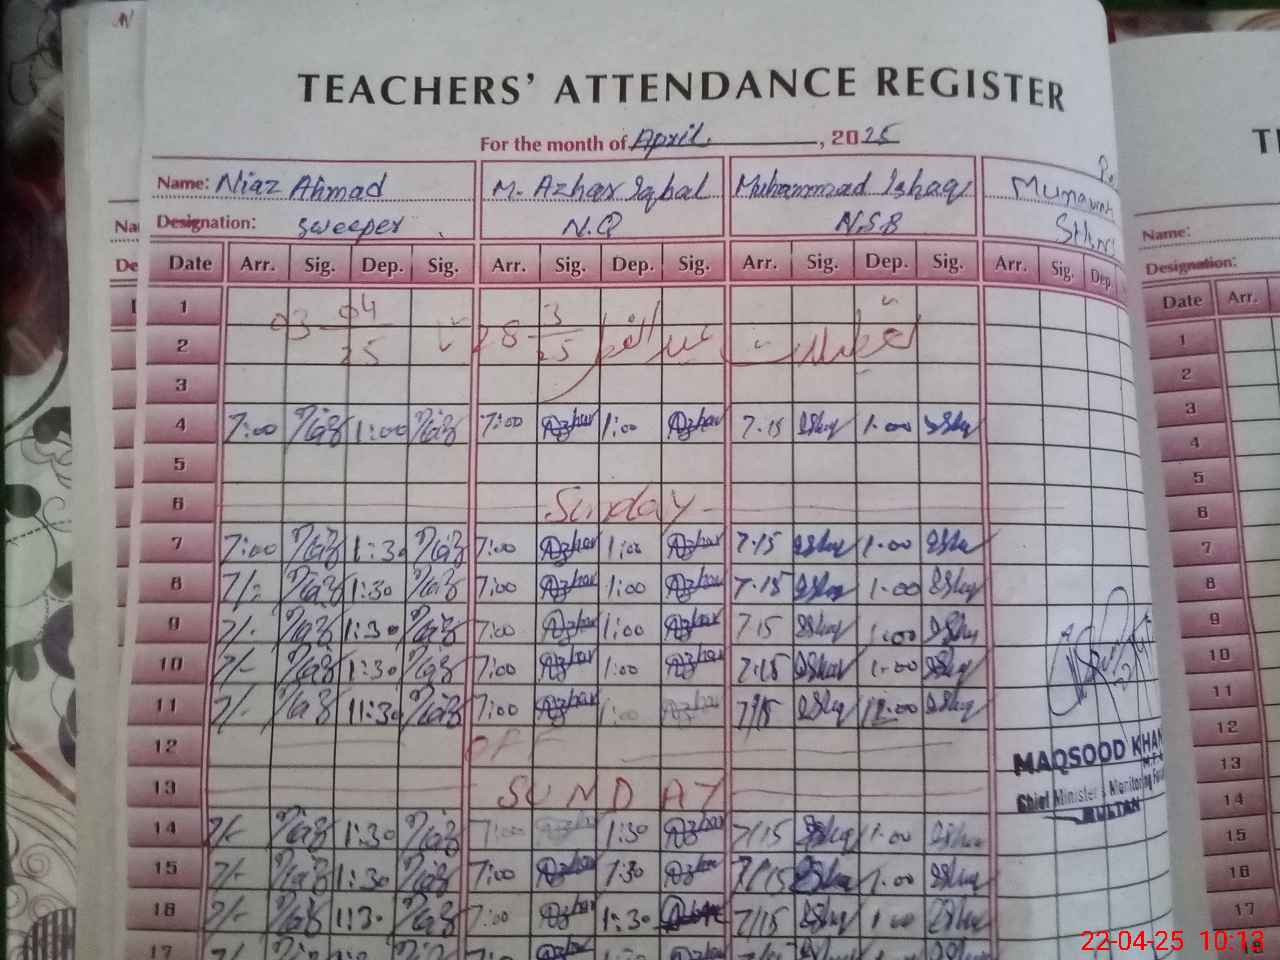 TEACHERS' ATTENDANCE REGISTER
For the month of April , 2025
Name: Niaz Ahmad M. Azhar Iqbal Muhammad Ishaq
Designation: sweeper N.Q N.S.B
Date Arr. Sig. Dep. Sig. Arr. Sig. Dep. Sig. Arr. Sig. Dep. Sig. Arr. Sig. Dep.
1
2
03-04/25 28-3/25
3
4 7:00 Niaz 1:00 Niaz 7:00 Azhar 1:00 Azhar 7.15 Ishaq 1.00 Ishaq
5
6 Sunday
7 7:00 Niaz 1:30 Niaz 7:00 Azhar 1:00 Azhar 7.15 Ishaq 1.00 Ishaq
8 7/- Niaz 1:30 Niaz 7:00 Azhar 1:00 Azhar 7.15 Ishaq 1.00 Ishaq
9 7/- Niaz 1:30 Niaz 7:00 Azhar 1:00 Azhar 7.15 Ishaq 1.00 Ishaq
10 7/- Niaz 1:30 Niaz 7:00 Azhar 1:00 Azhar 7.15 Ishaq 1.00 Ishaq
11 7/- Niaz 11:30 Niaz 7:00 Azhar 1:00 Azhar 7/15 Ishaq Ishaq
12 OFF
13 SUNDAY
14 7/- Niaz 1:30 Niaz 7:00 Azhar 1:30 Azhar 7/15 Ishaq 1.00 Ishaq
15 7/- Niaz 1:30 Niaz 7:00 Azhar 1:30 Azhar 7/15 Ishaq 1.00 Ishaq
16 7/- Niaz 1:30 Niaz 7:00 Azhar 1:30 Azhar 7/15 Ishaq 1.00 Ishaq
17
MAQSOOD KHAN
Chief Minister's Monitoring
MULTAN
Name:
Designation:
Date Arr.
1
2
3
4
5
6
7
8
9
10
11
12
13
14
15
16
17
22-04-25 10:13